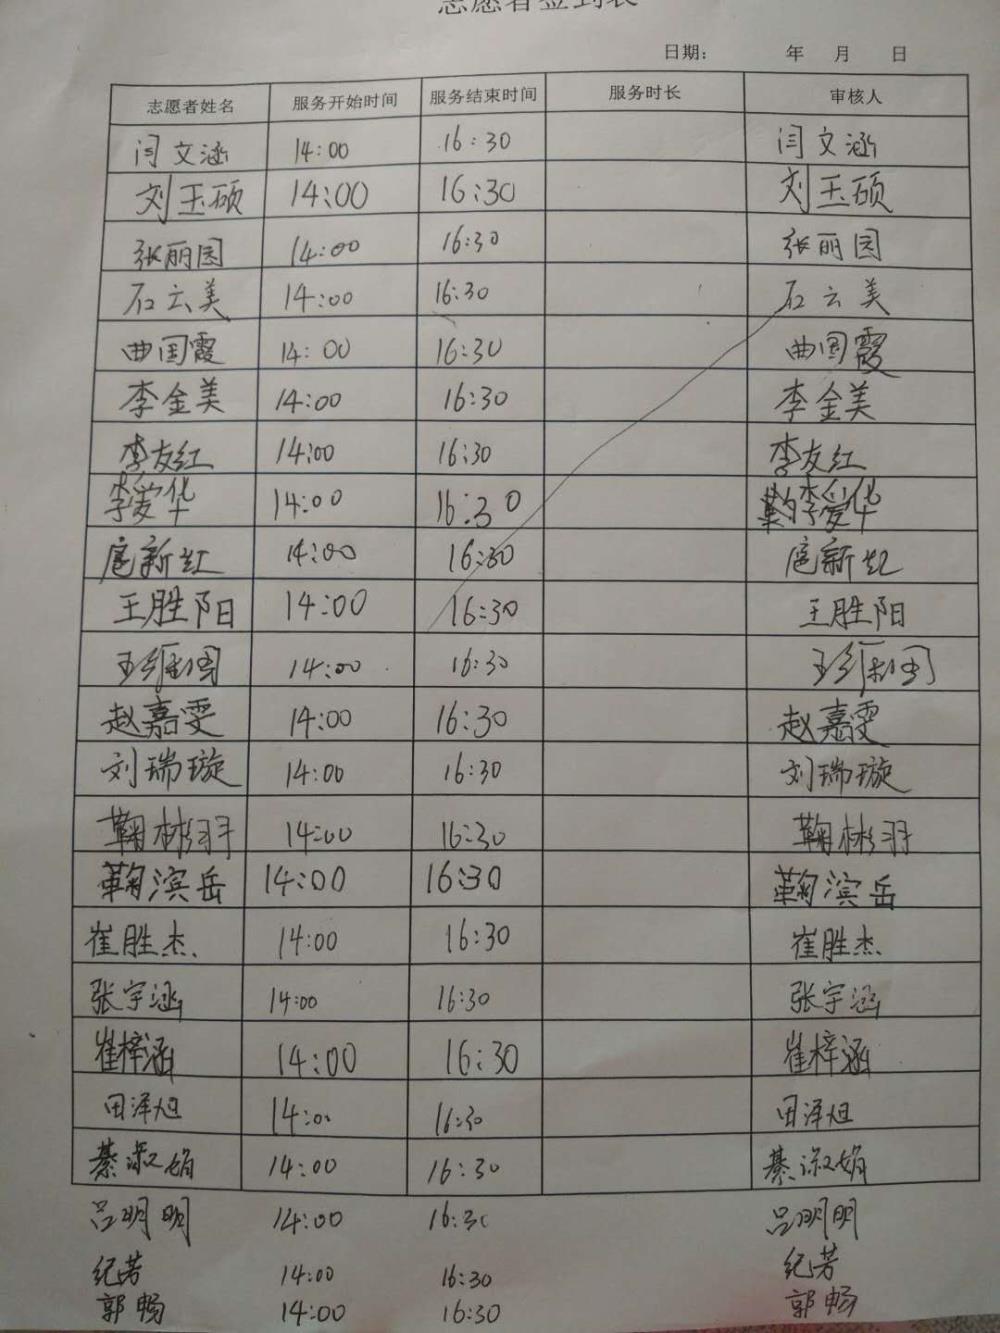 志愿者签到表
日期： 年 月 日
志愿者姓名 服务开始时间 服务结束时间 服务时长 审核人
闫文涵 14:00 16:30 闫文涵
刘玉硕 14:00 16:30 刘玉硕
张丽园 14:00 16:30 张丽园
石云美 14:00 16:30 石云美
曲国霞 14:00 16:30 曲国霞
李金美 14:00 16:30 李金美
李友红 14:00 16:30 李友红
李爱华 14:00 16:30 李爱华
扈新红 14:00 16:30 扈新红
王胜阳 14:00 16:30 王胜阳
14:00 16:30
赵嘉雯 14:00 16:30 赵嘉雯
刘瑞璇 14:00 16:30 刘瑞璇
鞠彬羽 14:00 16:30 鞠彬羽
鞠滨岳 14:00 16:30 鞠滨岳
崔胜杰 14:00 16:30 崔胜杰
张宇涵 14:00 16:30 张宇涵
崔梓涵 14:00 16:30 崔梓涵
田泽旭 14:00 16:30 田泽旭
綦淑娟 14:00 16:30 綦淑娟
吕明明 14:00 16:30 吕明明
纪芳 14:00 16:30 纪芳
郭畅 14:00 16:30 郭畅